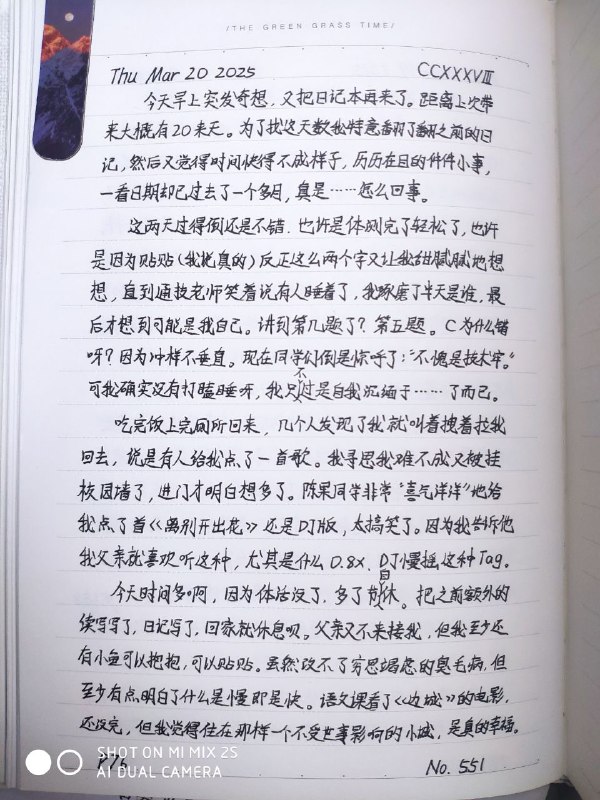 /THE GREEN GRASS TIME/
Thu Mar 20 2025 CCXXXVIII
今天早上突发奇想，又把日记本再来了。距离上次带
来大概有20来天。为了找这天数我特意翻了翻之前的日
记，然后又觉得时间快得不成样子，历历在目的件件小事，
一看日期却已过去了一个多月，真是……怎么回事。
这两天过得倒还是不错，也许是体测完了轻松了，也许
是因为贴贴（我说真的）反正这么两个字又让我甜腻腻地想
想，直到通技老师笑着说有人睡着了，我琢磨了半天是谁，最
后才想到可能是我自己。讲到第几题了？第五题。C为什么错
呀？因为冲样不垂直。现在同学们倒是惊呼了：“不愧是技术宅。”
可我确实没有打瞌睡呀，我只不过是自我沉缅于……了而已。
吃完饭上完厕所回来，几个人发现了我就叫着拽着拉我
回去，说是有人给我点了一首歌。我寻思我难不成又被挂
校园墙了，进门才明白想多了。陈果同学非常“喜气洋洋”地给
我点了首《离别开出花》还是DJ版，太搞笑了。因为我告诉他
我父亲就喜欢听这种，尤其是什么0.8x、DJ慢摇这种Tag。
今天时间多啊，因为体活没了，多了自休。把之前额外的
续写写了，日记写了，回家就休息呗。父亲又不来接我，但我至少还
有小鱼可以抱抱，可以贴贴。虽然改不了穷思竭虑的臭毛病，但
至少有点明白了什么是慢即是快。语文课看了《边城》的电影，
还没完，但我觉得住在那样一个不受世事影响的小城，是真的幸福。
P76 No. 551
SHOT ON MI MIX 2S
AI DUAL CAMERA